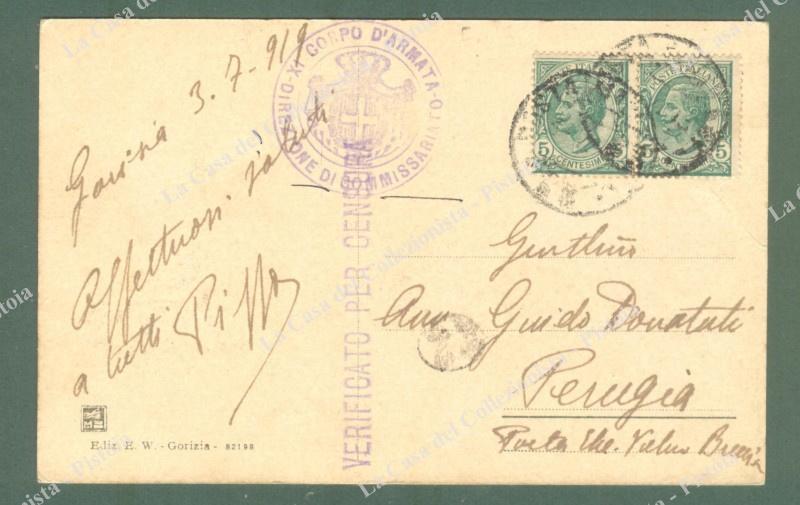 3.7.919
Affettuosi saluti
a tutti Pippo
Ediz. E. W. - Gorizia - 82198
XI CORPO D'ARMATA - DIREZIONE DI COMMISSARIATO
VERIFICATO PER CENSURA
POSTE ITALIANE
5 CENTESIMI 5
POSTE ITALIANE
5
Avv. Guido Donatuti
Perugia
La Casa del Collezionista - Pistoia